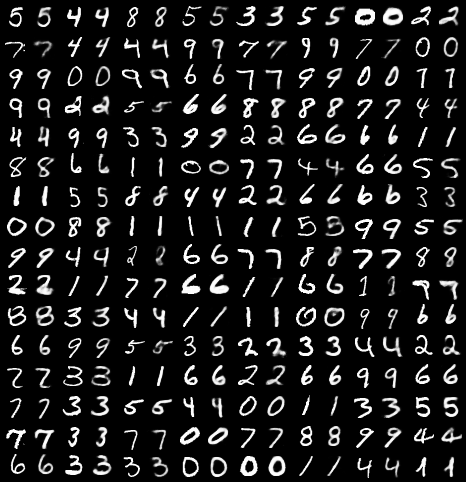 5 5 4 4 8 8 5 5 3 3 5 5 0 0 2 2
7 7 4 4 4 4 9 9 7 7 9 9 7 7 0 0
9 9 0 0 9 9 6 6 7 7 9 9 0 0 7 7
9 9 2 2 5 5 6 6 8 8 8 8 7 7 4 4
4 4 9 9 3 3 9 9 2 2 6 6 6 6 1 1
8 8 6 6 1 1 0 0 7 7 4 4 6 6 5 5
1 1 5 5 8 8 4 4 2 2 6 6 6 6 3 3
0 0 8 8 1 1 1 1 1 1 5 5 9 9 5 5
9 9 4 4 2 2 6 6 7 7 8 8 7 7 8 8
2 2 1 1 7 7 6 6 1 1 6 6 1 1 7 7
8 8 3 3 4 4 1 1 1 1 0 0 9 9 6 6
6 6 9 9 5 5 3 3 2 2 3 3 4 4 2 2
7 7 3 3 1 1 6 6 2 2 6 6 9 9 6 6
7 7 3 3 5 5 4 4 0 0 1 1 3 3 5 5
7 7 3 3 7 7 0 0 7 7 8 8 9 9 4 4
6 6 3 3 3 3 0 0 0 0 1 1 4 4 1 1